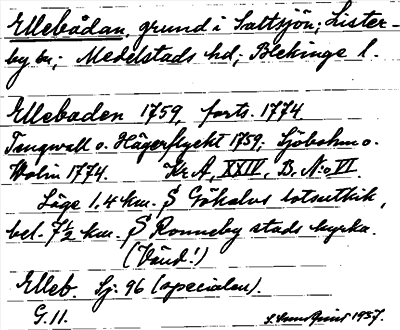 Ellebådan, grund i Saltsjön; Lister-
by sn; Medelstads hd; Blekinge l.
Ellebaden 1759, forts. 1774
Tengwall o. Hägerflycht 1759; Sjöbohm o.
Wolin 1774. Kr A, XXIV, B, N:o VI.
Läge 1.4 km. S Gökalvs lotsutkik,
bel. 7½ km. S Ronneby stads kyrka.
(Vänd!)
Elleb. Sj. 96 (specialen).
G. 11. 1937.